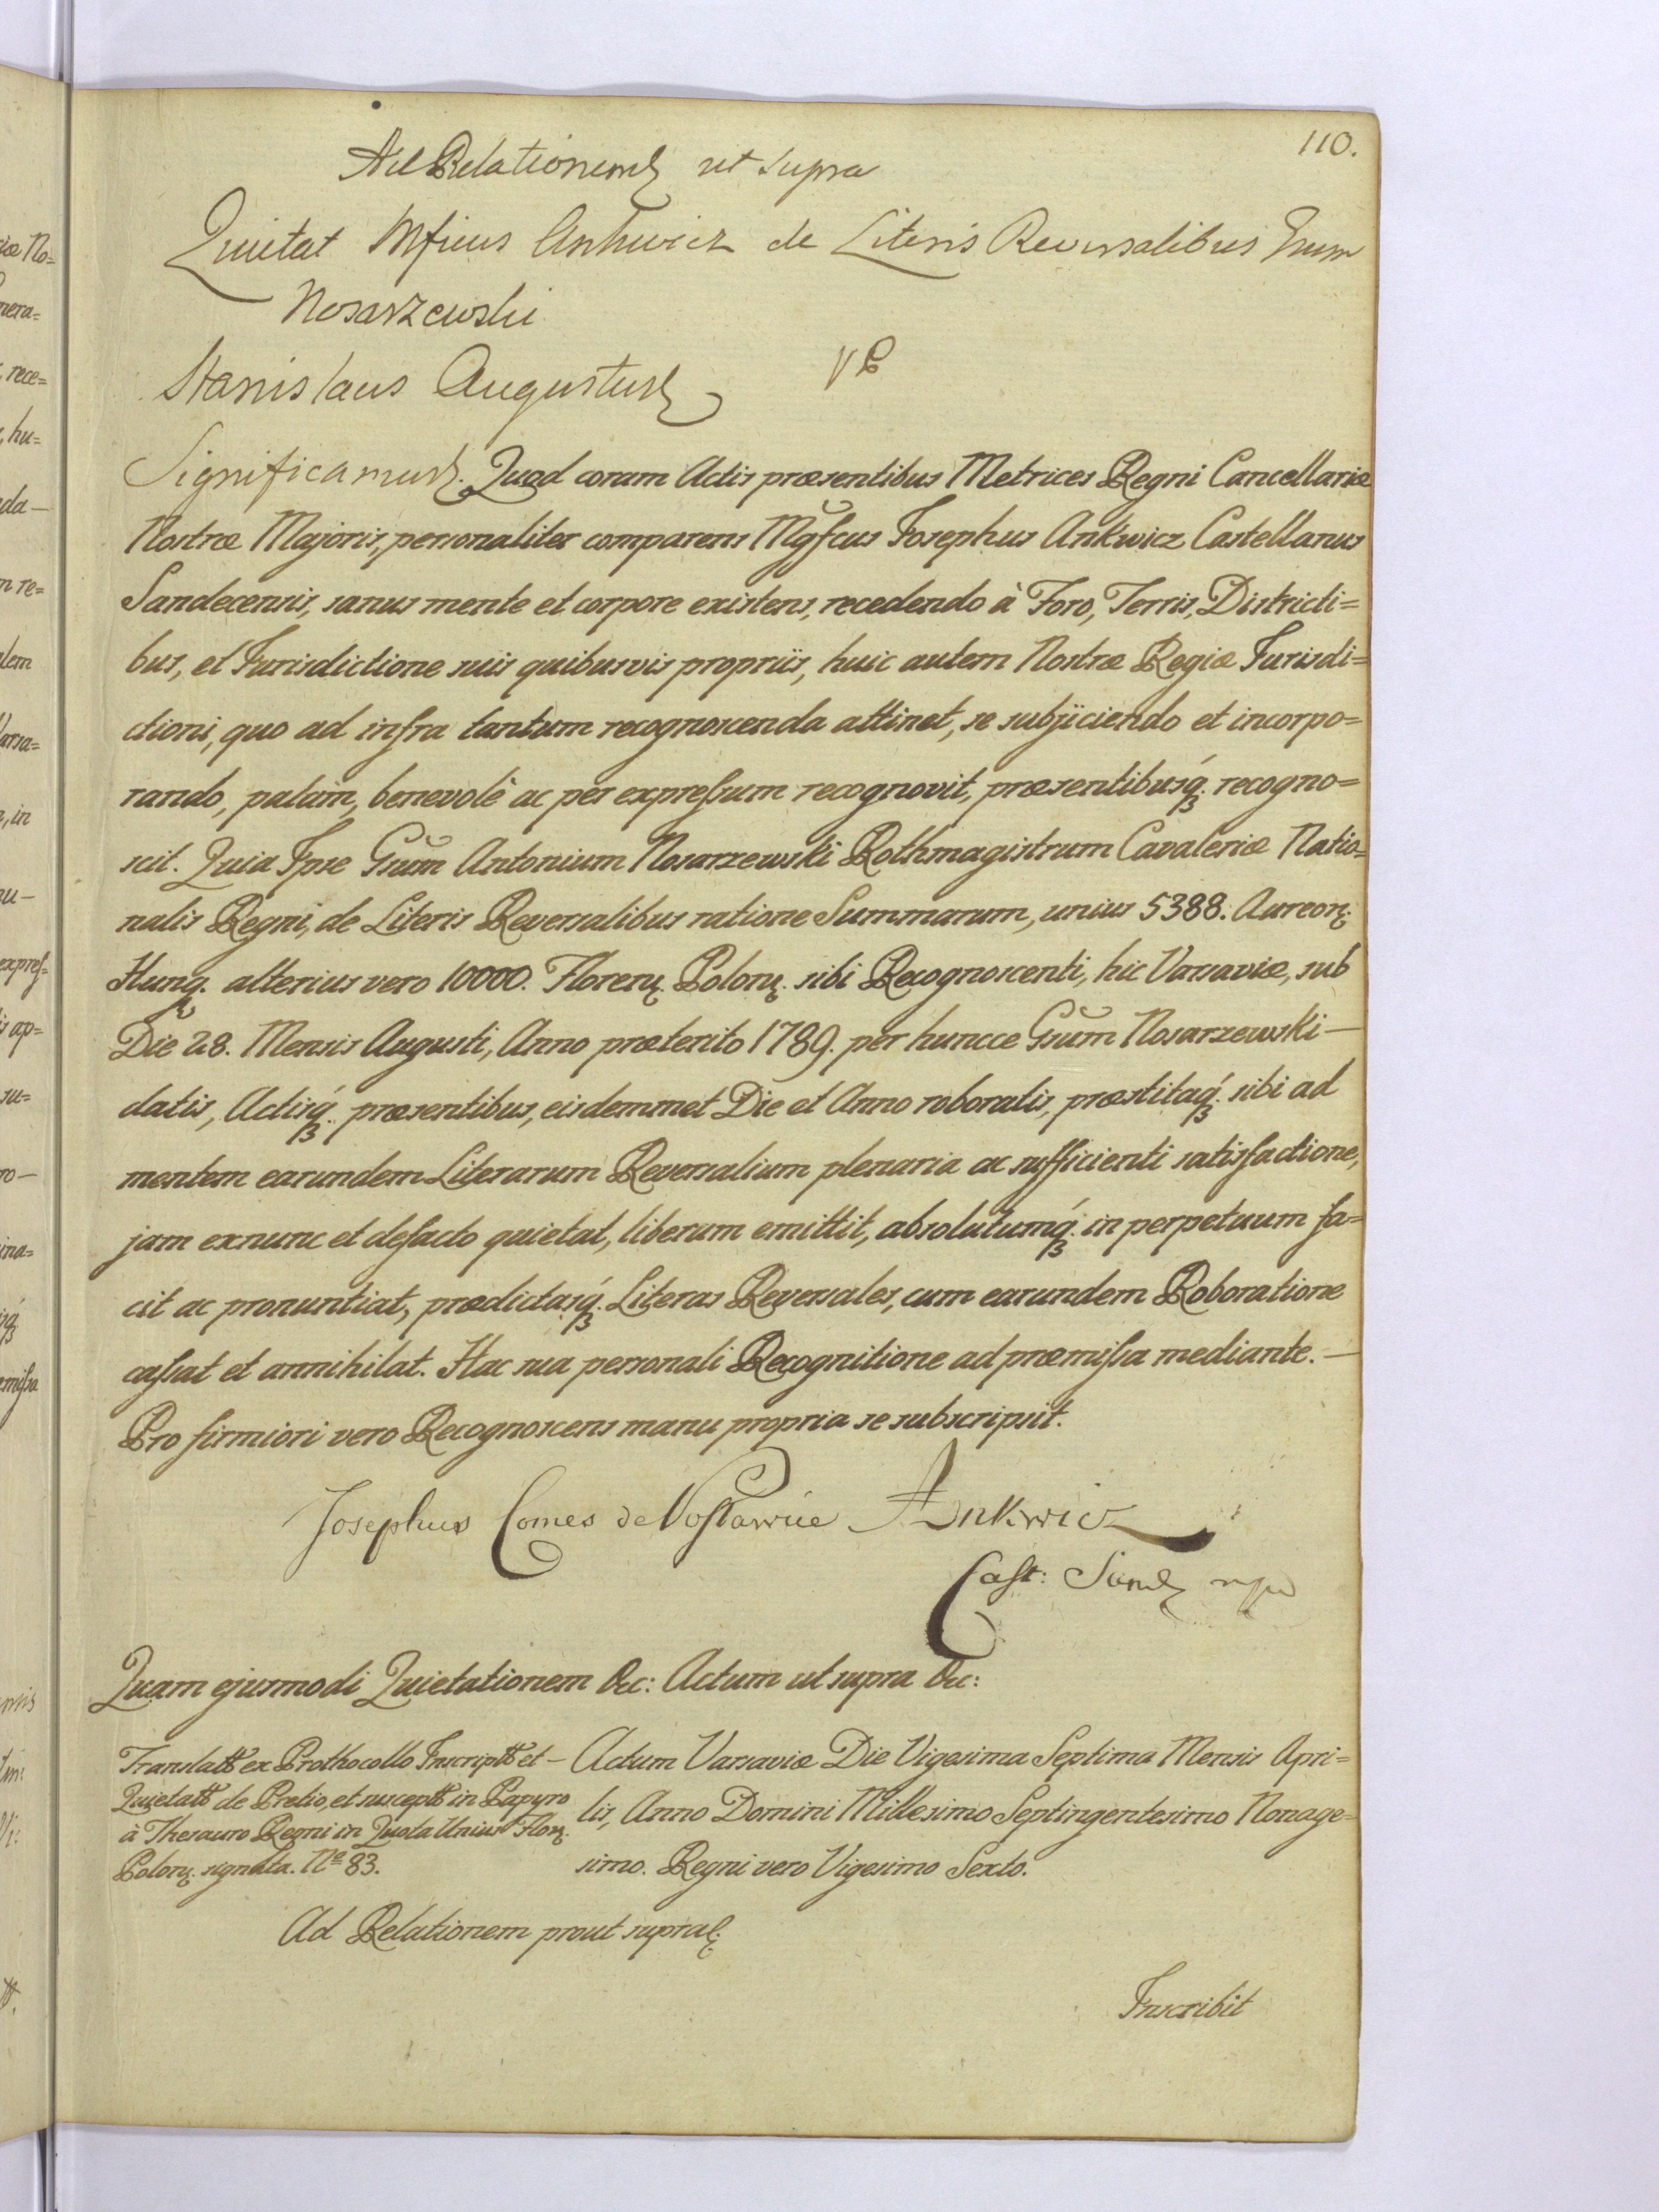 110.
Ad Relationem ut supra
Quietat Mficus Ankwicz de Literis Reversalibus Gsum
Nosarzewski
Stanislaus Augustus
Significamus. Quod coram Actis præsentibus Metrices Regni Cancellariæ
Nostræ Majoris, personaliter comparens Mgfcus Josephus Ankwicz Castellanus
Sandecensis, sanus mente et corpore existens, recedendo à Foro, Terris, Districti=
bus, et Jurisdictione suis quibusvis propriis, huic autem Nostræ Regiæ Jurisdi=
ctioni, quo ad infra tantum recognoscenda attinet, se subjiciendo et incorpo=
rando, palàm, benevolè ac per expressum recognovit, præsentibusq́ꝫ. recogno=
scit. Quia Ipse Gsum Antonium Nosarzewski Rothmagistrum Cavaleriæ Natio=
nalis Regni, de Literis Reversalibus ratione Summarum, unius 5388. Aureorꝝ.
Hungꝝ. alterius vero 10000. Florenꝝ. Polonꝝ. sibi Recognoscenti, hic Varsaviæ, sub
Die 28. Mensis Augusti, Anno præterito 1789. per huncce Gsum Nosarzewski —
datis, Actisq́ꝫ. præsentibus, eisdemmet Die et Anno roboratis, præstitaq́ꝫ. sibi ad
mentem earundem Literarum Reversalium plenaria ac sufficienti satisfactione,
jam exnunc et defacto quietat, liberum emittit, absolutumq́ꝫ. in perpetuum fa=
cit ac pronuntiat, prædictasq́ꝫ. Literas Reversales, cum earundem Roboratione
cassat et annihilat. Hac sua personali Recognitione ad præmissa mediante. —
Pro firmiori vero Recognoscens manu propria se subscripsit.
Josephus Comes de Posławice Ankwicz
Cast: Sand mpr
Quam ejusmodi Quietationem &c: Actum ut supra &c:
Translatt ex Prothocollo Inscriptt et —
Quietatt de Pretio, et susceptt in Papyro
à Thesauro Regni in Quota Unius Florꝝ.
Polonꝝ. signata. Nº 83.
Actum Varsaviæ Die Vigesima Septima Mensis Apri=
lis, Anno Domini Millesimo Septingentesimo Nonage=
simo. Regni vero Vigesimo Sexto.
Ad Relationem prout supra.
Inscribit